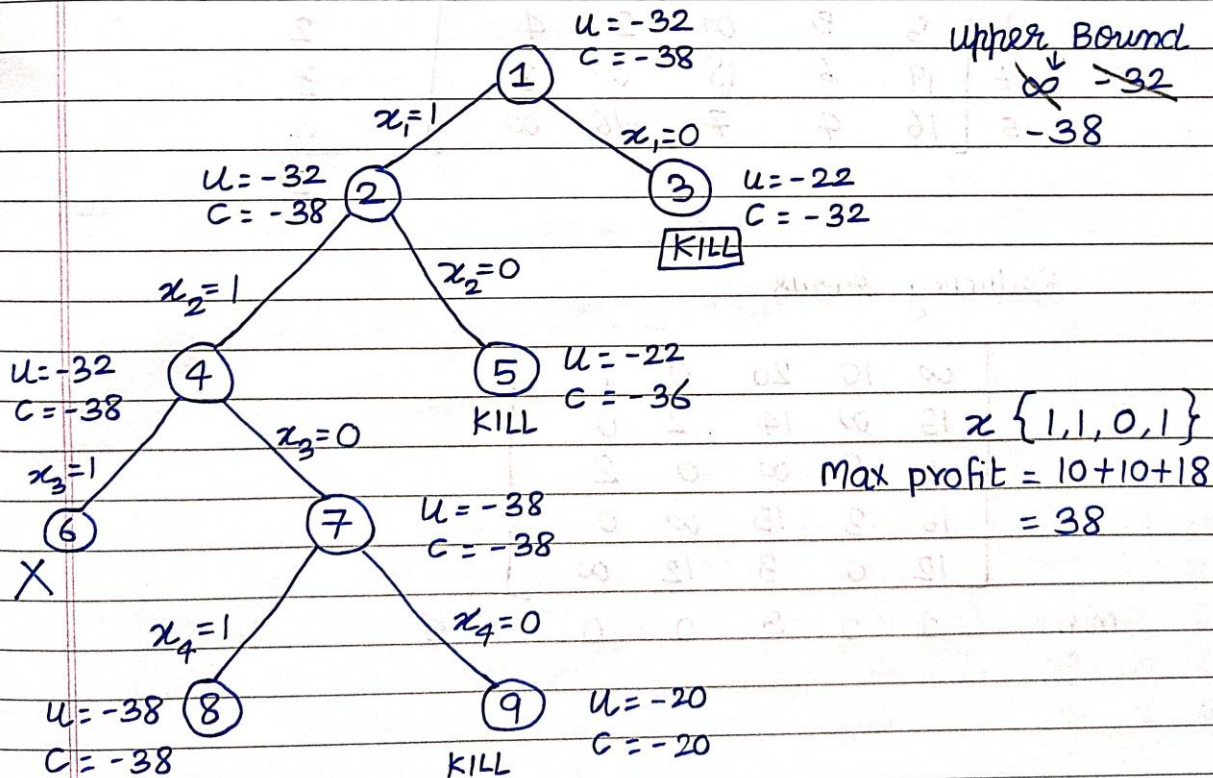 U = -32
C = -38
1
upper Bound
∞ = 32
-38
x₁=1
x₁=0
U = -32
C = -38
2
3
U = -22
C = -32
KILL
x₂=1
x₂=0
U = -32
C = -38
4
5
U = -22
C = -36
KILL
x₃=1
x₃=0
x {1,1,0,1}
Max profit = 10+10+18
= 38
6
X
7
U = -38
C = -38
x₄=1
x₄=0
U = -38
C = -38
8
9
U = -20
C = -20
KILL